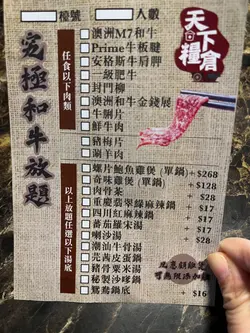 檯號
人數
天下糧倉
究極和牛放題
任食以下肉類
澳洲M7和牛
Prime牛板腱
安格斯牛肩胛
一級肥牛
封門柳
澳洲和牛金錢展
牛𦟌片
鮮牛肉
豬梅片
涮羊肉
以上放題任選以下湯底
螺片鮑魚雞煲 (單鍋) +$268
奇味雞煲 (單鍋) + $128
肉骨茶 + $28
重慶翡翠綠麻辣鍋 + $28
四川紅麻辣鍋 + $17
蕃茄羅宋湯 + $28
喇沙湯 + $28
潮汕牛骨湯
芫茜皮蛋鍋
豬骨粟米湯
秘製沙嗲鍋
鴛鴦鍋底 + $16